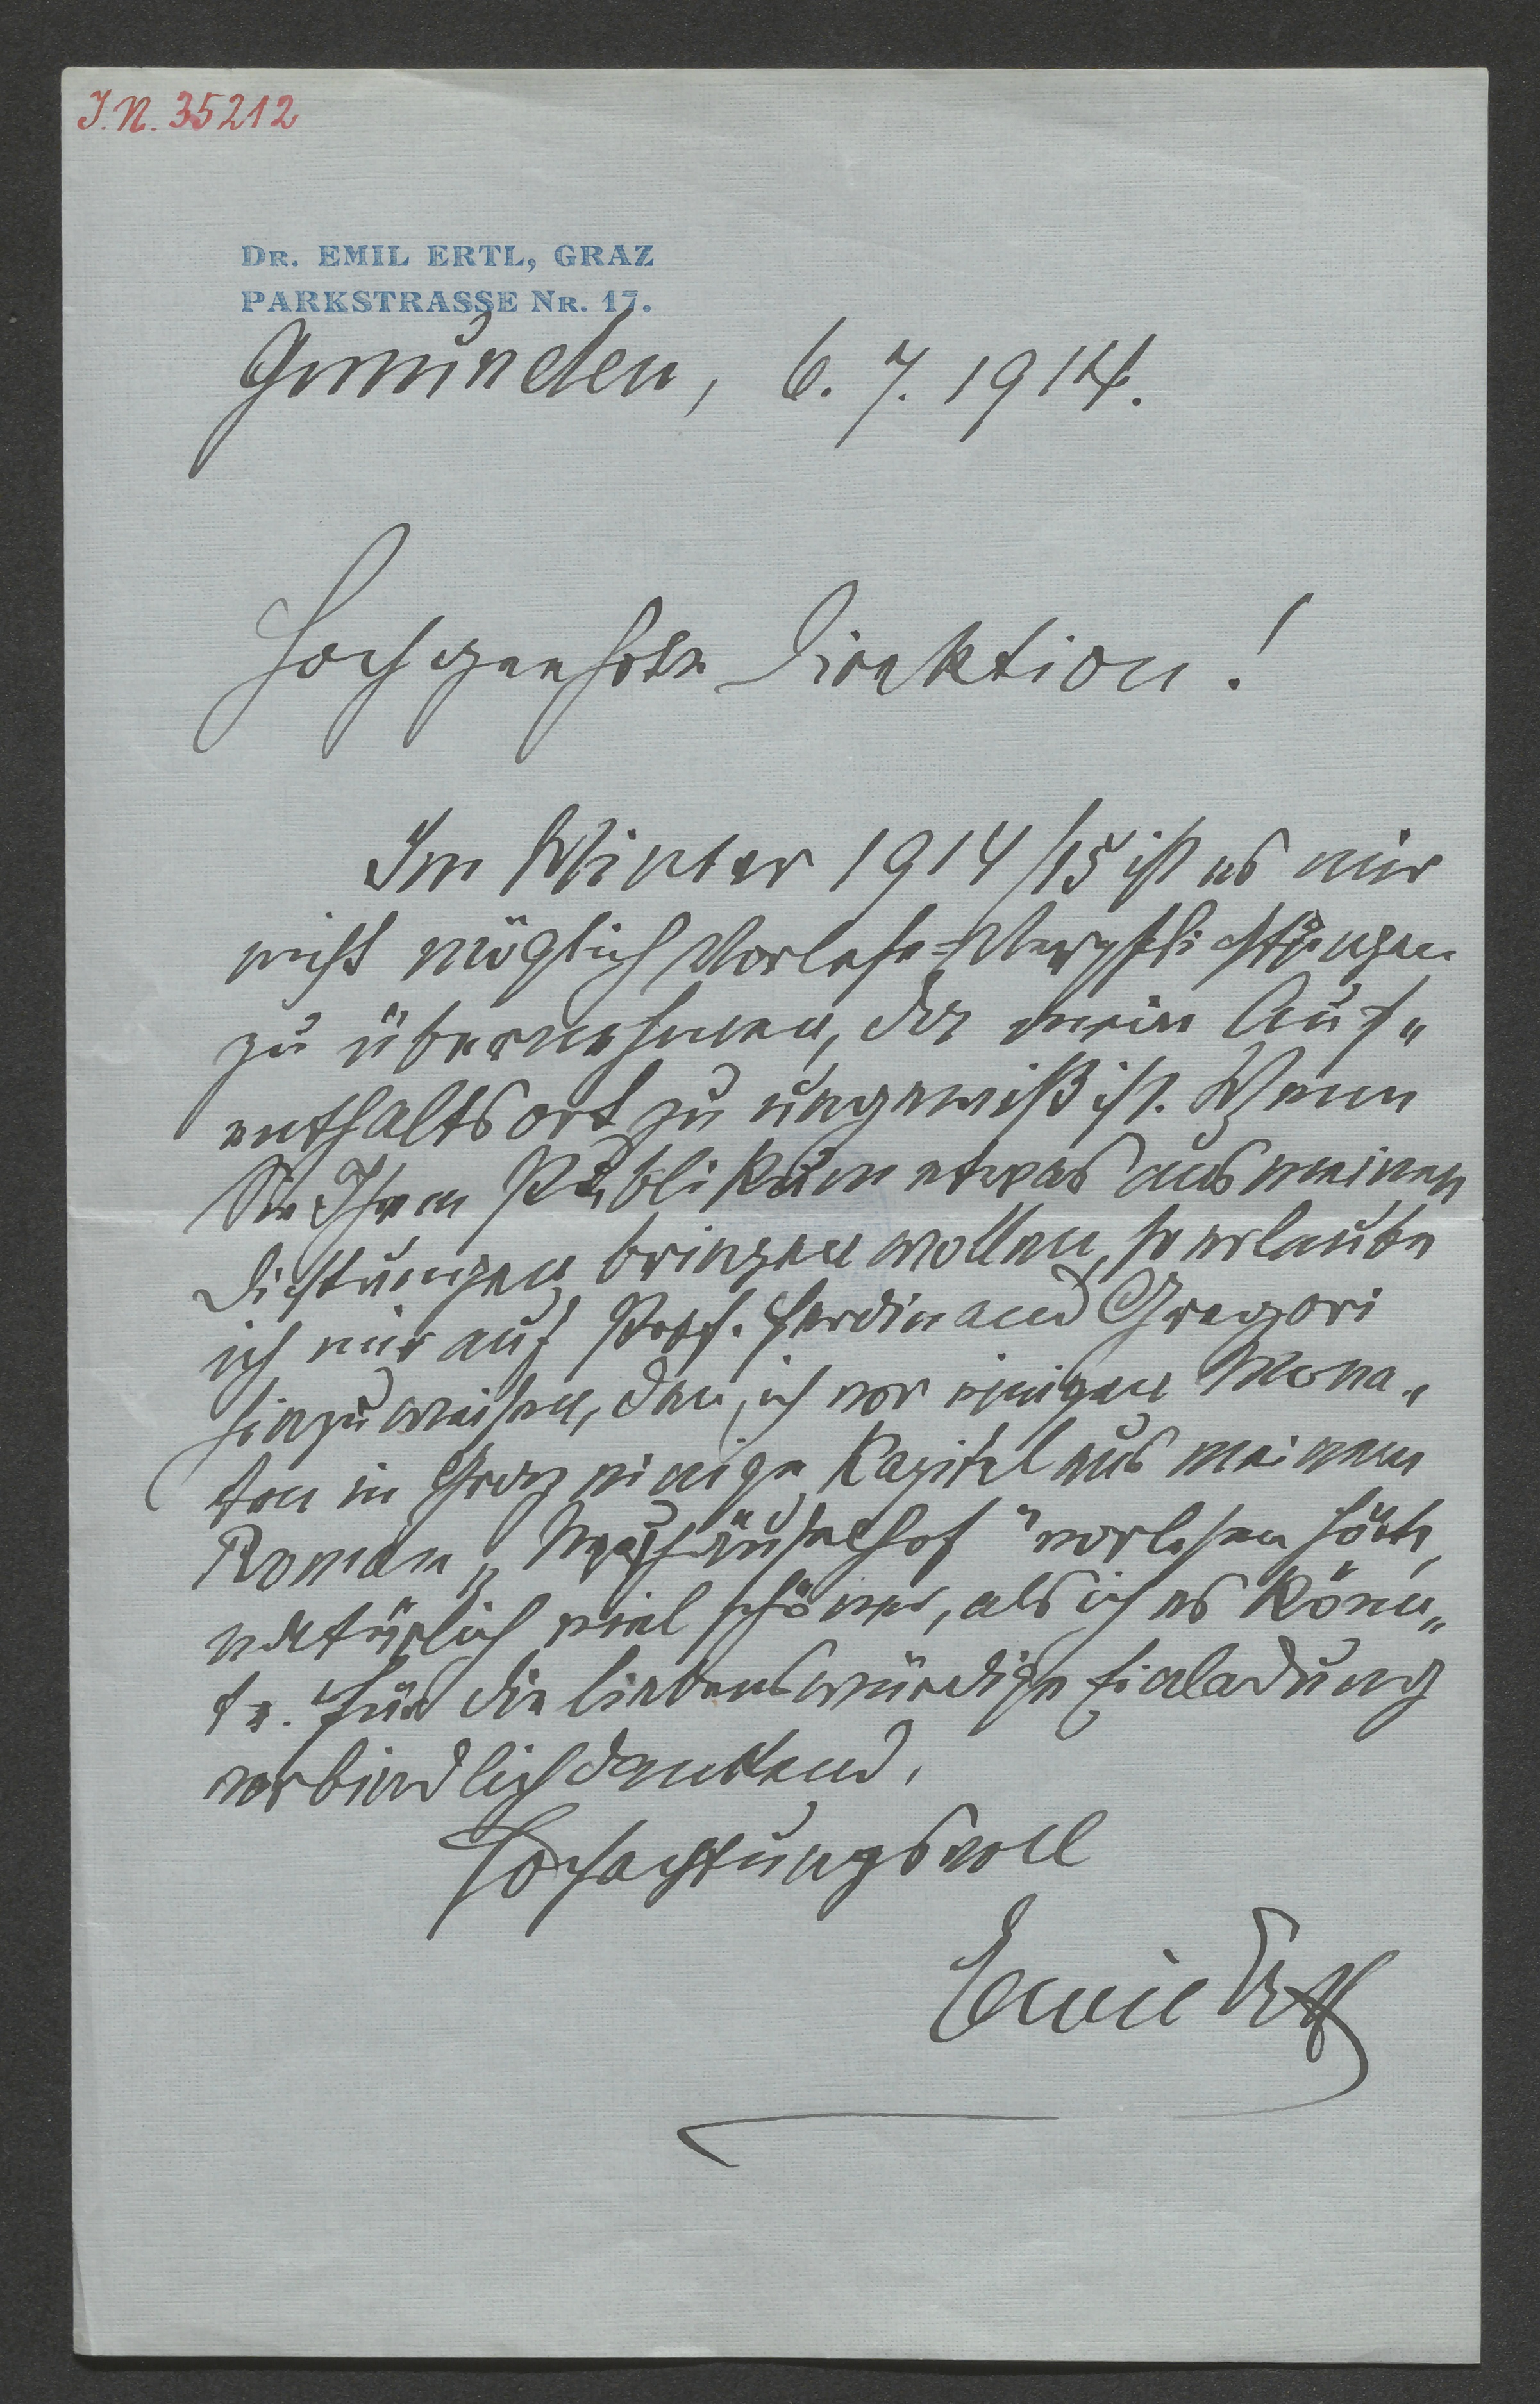 J. N. 35212
DR. EMIL ERTL, GRAZ
PARKSTRASSE NR. 17.
Gmunden, 6. 7. 1914.
Hochgeehrte Direktion!
Im Winter 1914/15 ist es mir
nicht möglich Vorlese-Verpflichtungen
zu übernehmen, da mein Auf-
enthaltsort zu ungewiß ist. Wenn
Sie Ihrem Publikum etwas aus meinen
Dichtungen bringen wollen, so erlaube
ich mir auf Prof. Ferdinand Gregori
hinzuweisen, den ich vor einigen Mona-
ten in Graz einige Kapitel aus meinem
Roman „Neuhäuselhof" vorlesen hörte,
natürlich viel schöner, als ich es könn-
te. Für die liebenswürdige Einladung
verbindlich dankend,
Hochachtungsvoll
Emil Ertl